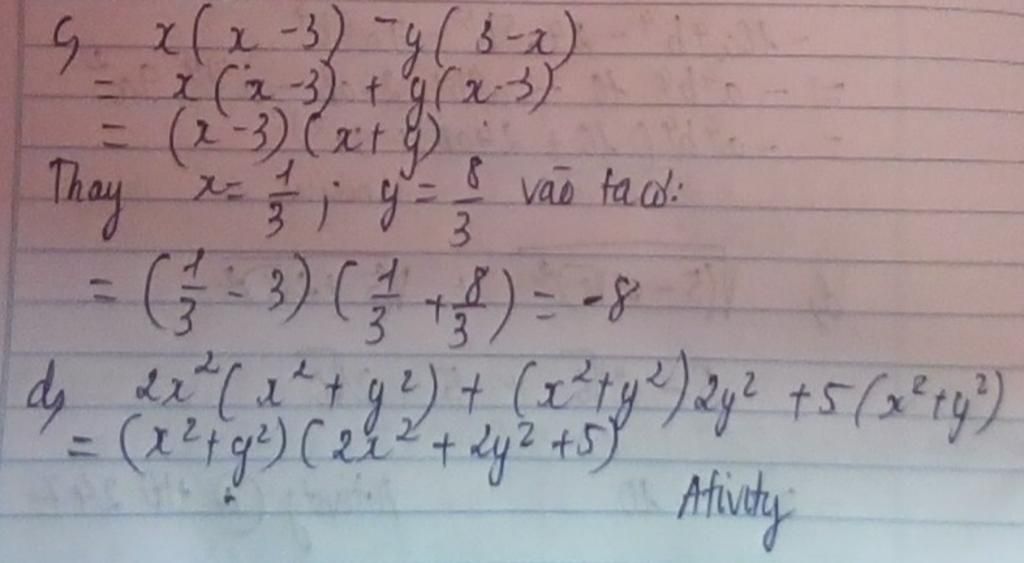 c, x(x-3) - y(3-x)
= x(x-3) + y(x-3)
= (x-3)(x+y)
Thay x = 1/3 ; y = 8/3 vào ta có:
= (1/3 - 3) (1/3 + 8/3) = -8
d, 2x²(x² + y²) + (x²+y²)2y² + 5(x²+y²)
= (x²+y²)(2x² + 2y² +5)
Ativity